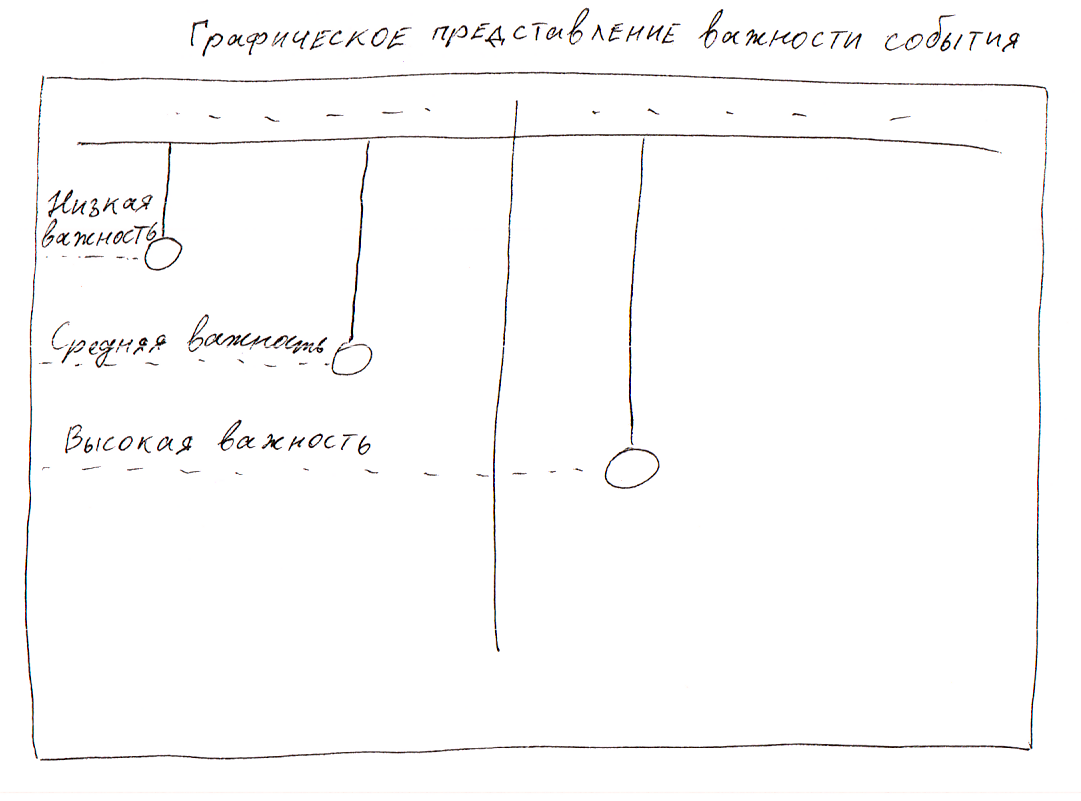 Графическое представление важности события
Низкая
важность
Средняя важность
Высокая важность